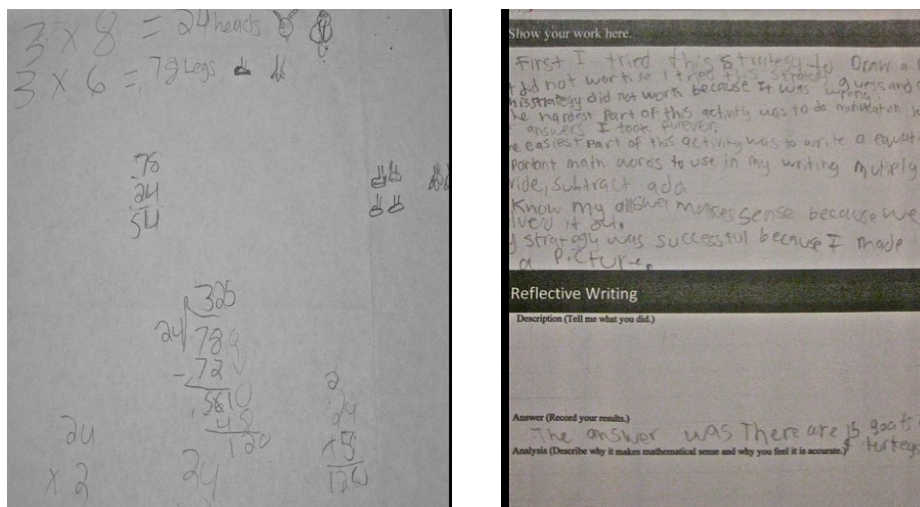 3 x 8 = 24 heads
3 x 6 = 78 Legs
78
24
54
325
24 78
- 72
48
120
24
x 2
24
2
24
x 5
120
Show your work here.
First I tried this strategy to Draw a
did not work so I tried this strategy guess and
his strategy did not work because It was wrong.
he hardest part of this activity was to do
answers I took furever.
e easiest part of this activity was to write a equat
portant math words to use in my writing mutiply
vide, subtract add
Know my answer makes sense because we
lved it out.
y strategy was successful because I made
a Picture.
Reflective Writing
Description (Tell me what you did.)
Answer (Record your results.)
The answer was There are 15 goats
Analysis (Describe why it makes mathematical sense and why you feel it is accurate.)
turkeys